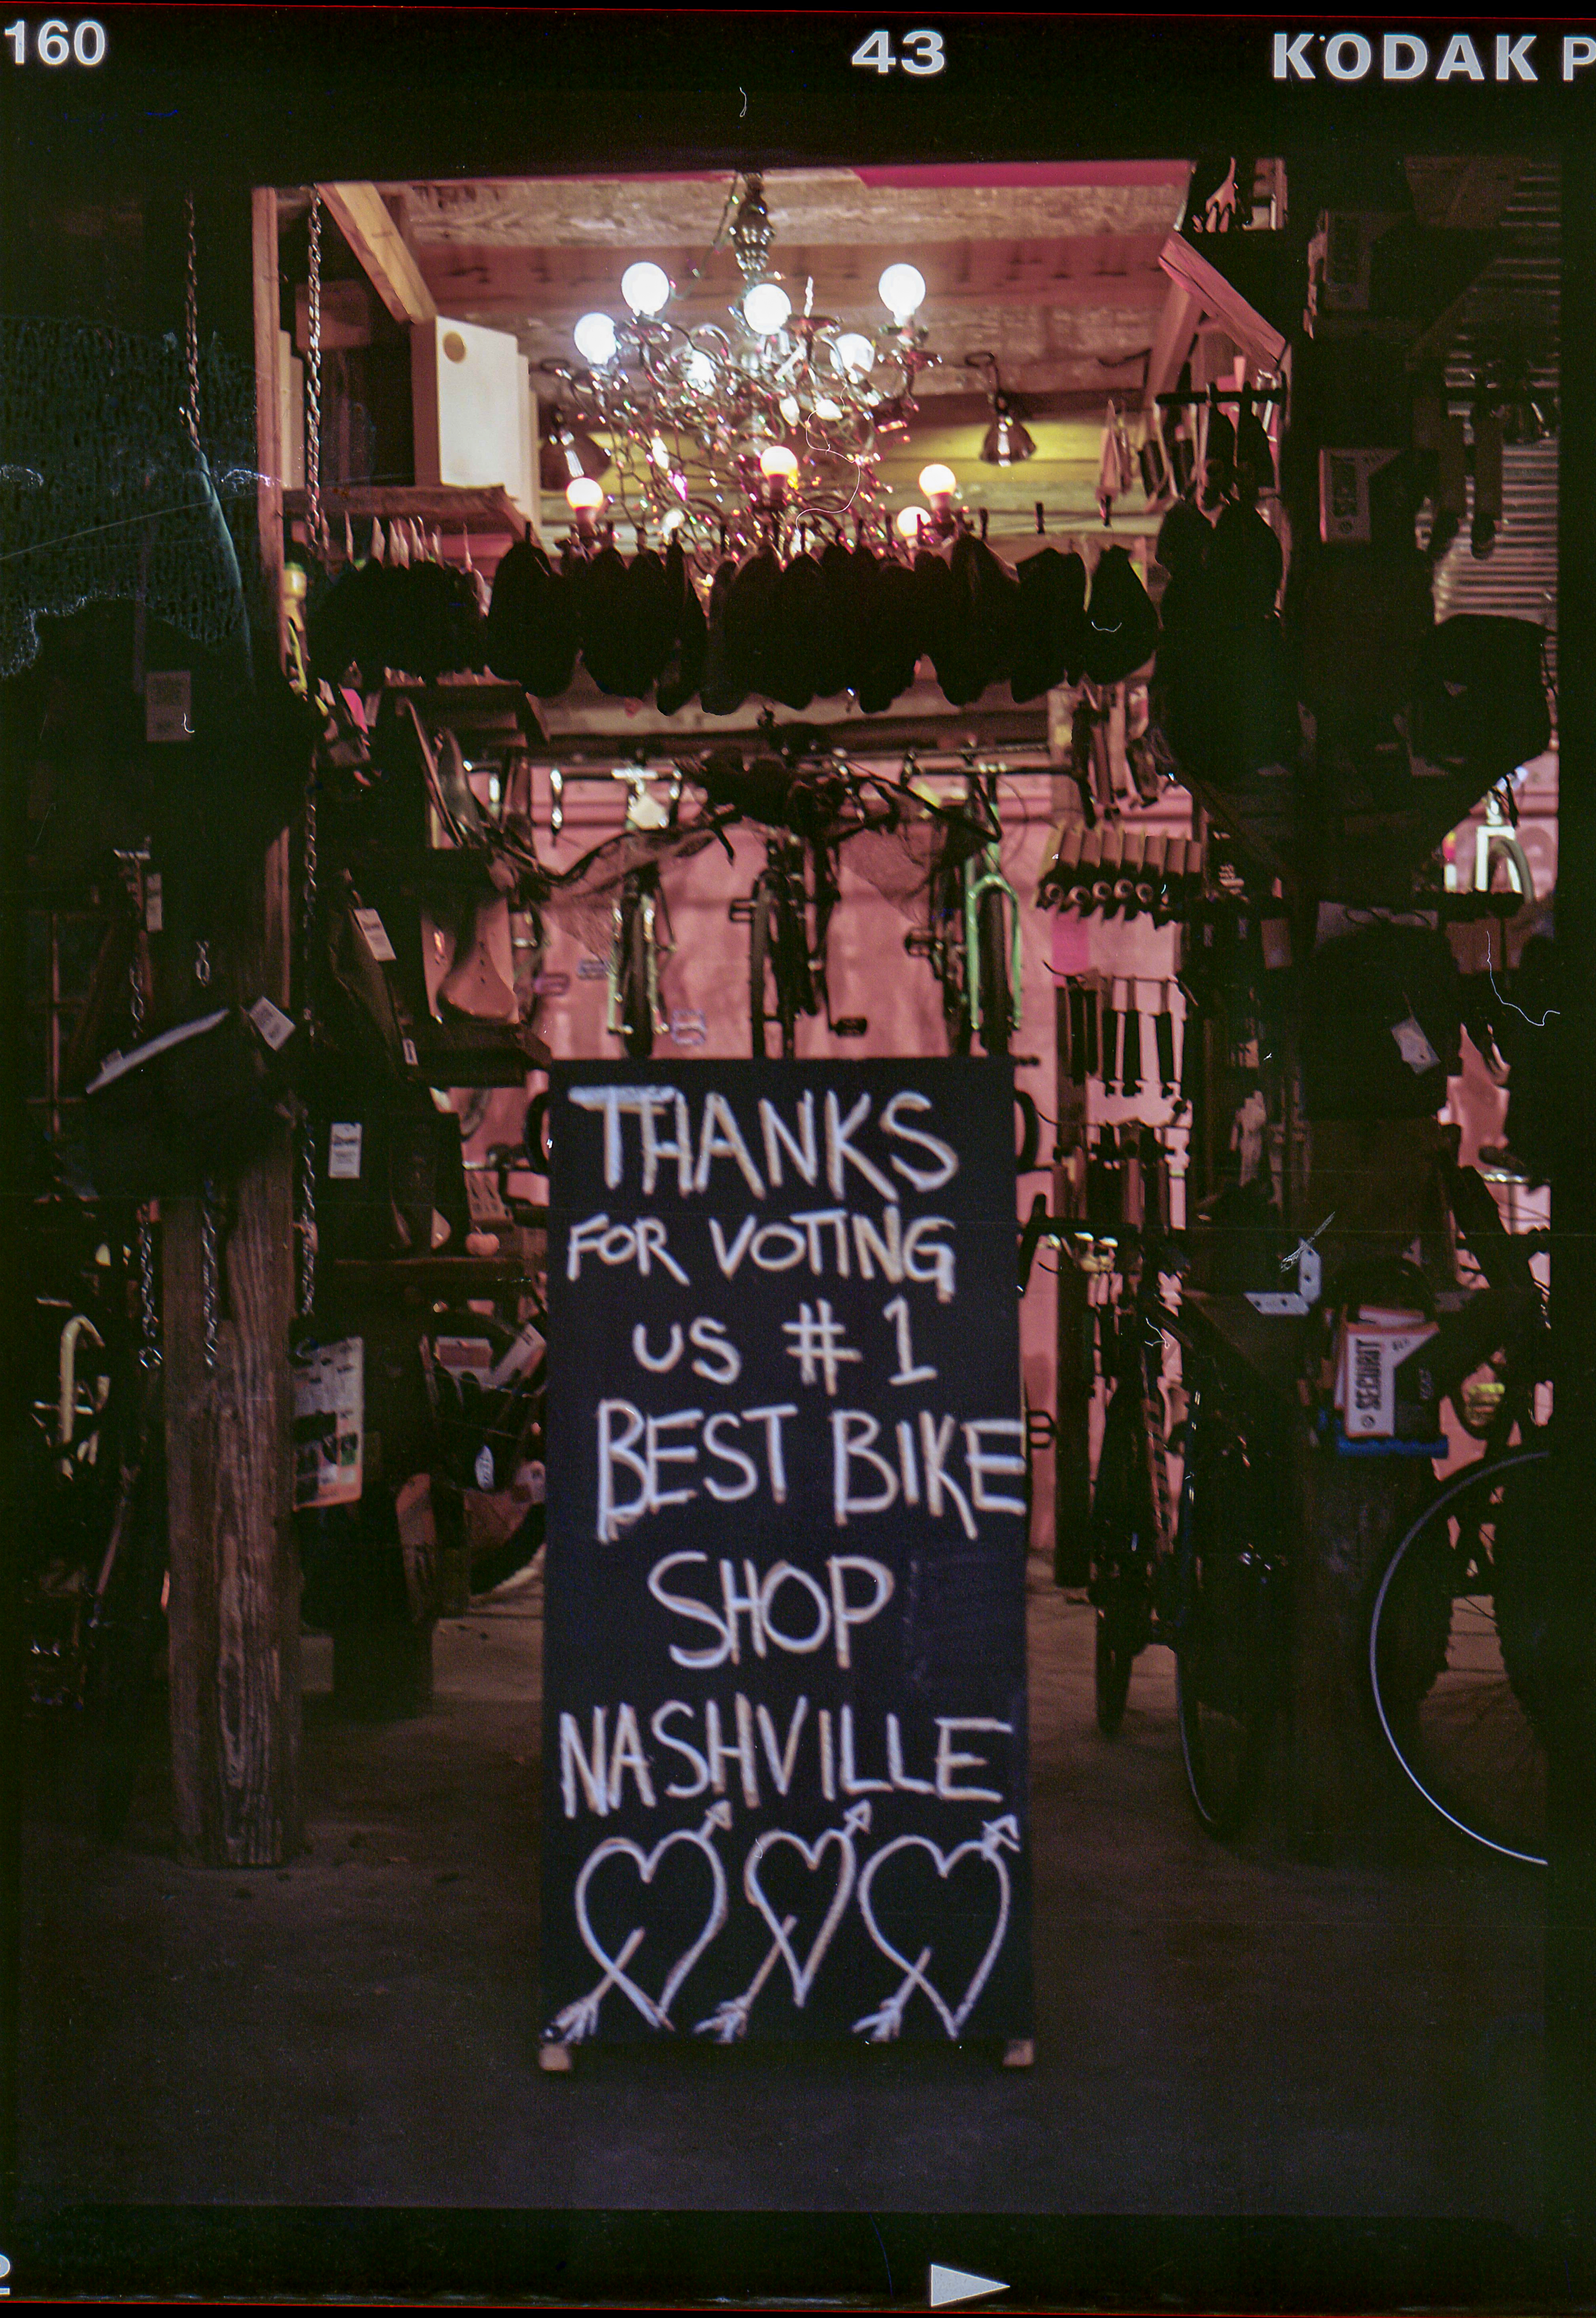 160 43 KODAK P
THANKS
FOR VOTING
US #1
BEST BIKE
SHOP
NASHVILLE
SECURIT